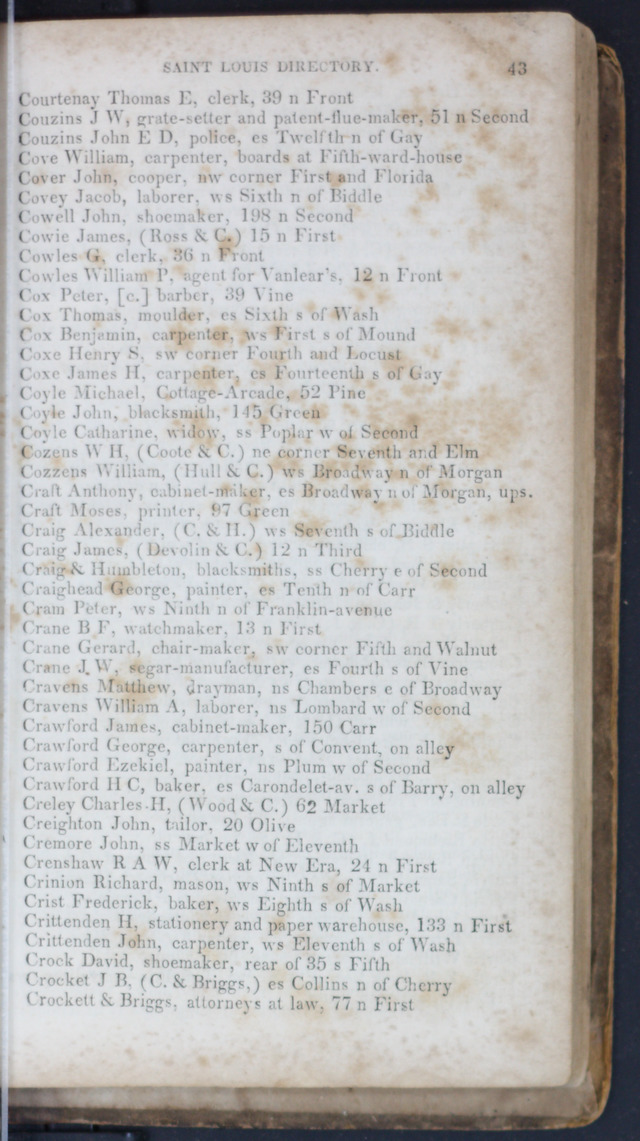 SAINT LOUIS DIRECTORY. 43
Courtenay Thomas E, clerk, 39 n Front
Couzins J W, grate-setter and patent-flue-maker, 51 n Second
Couzins John E D, police, es Twelfth n of Gay
Cove William, carpenter, boards at Fifth-ward-house
Cover John, cooper, nw corner First and Florida
Covey Jacob, laborer, ws Sixth n of Biddle
Cowell John, shoemaker, 198 n Second
Cowie James, (Ross & C.) 15 n First
Cowles G, clerk, 36 n Front
Cowles William P, agent for Vanlear's, 12 n Front
Cox Peter, [c.] barber, 39 Vine
Cox Thomas, moulder, es Sixth s of Wash
Cox Benjamin, carpenter, ws First s of Mound
Coxe Henry S, sw corner Fourth and Locust
Coxe James H, carpenter, es Fourteenth s of Gay
Coyle Michael, Cottage-Arcade, 52 Pine
Coyle John, blacksmith, 145 Green
Coyle Catharine, widow, ss Poplar w of Second
Cozens W H, (Coote & C.) ne corner Seventh and Elm
Cozzens William, (Hull & C.) ws Broadway n of Morgan
Craft Anthony, cabinet-maker, es Broadway n of Morgan, ups.
Craft Moses, printer, 97 Green
Craig Alexander, (C. & H.) ws Seventh s of Biddle
Craig James, (Devolin & C.) 12 n Third
Craig & Humbleton, blacksmiths, ss Cherry e of Second
Craighead George, painter, es Tenth n of Carr
Cram Peter, ws Ninth n of Franklin-avenue
Crane B F, watchmaker, 13 n First
Crane Gerard, chair-maker, sw corner Fifth and Walnut
Crane J. W, segar-manufacturer, es Fourth s of Vine
Cravens Matthew, drayman, ns Chambers e of Broadway
Cravens William A, laborer, ns Lombard w of Second
Crawford James, cabinet-maker, 150 Carr
Crawford George, carpenter, s of Convent, on alley
Crawford Ezekiel, painter, ns Plum w of Second
Crawford H C, baker, es Carondelet-av. s of Barry, on alley
Creley Charles H, (Wood & C.) 62 Market
Creighton John, tailor, 20 Olive
Cremore John, ss Market w of Eleventh
Crenshaw R A W, clerk at New Era, 24 n First
Crinion Richard, mason, ws Ninth s of Market
Crist Frederick, baker, ws Eighth s of Wash
Crittenden H, stationery and paper warehouse, 133 n First
Crittenden John, carpenter, ws Eleventh s of Wash
Crock David, shoemaker, rear of 35 s Fifth
Crocket J B, (C. & Briggs,) es Collins n of Cherry
Crockett & Briggs, attorneys at law, 77 n First